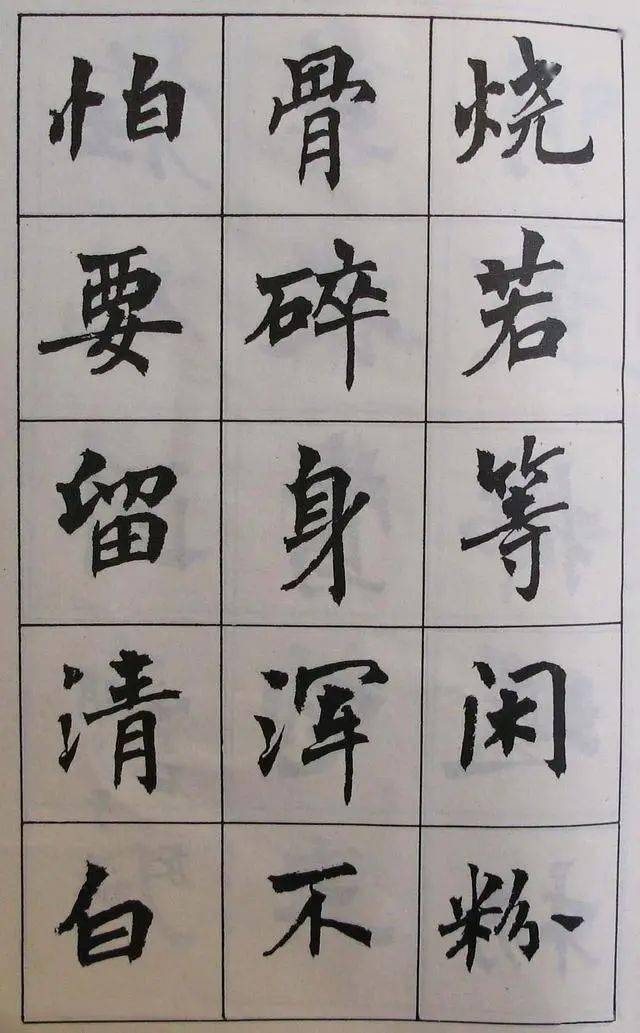 烧若等闲粉
骨碎身浑不
怕要留清白